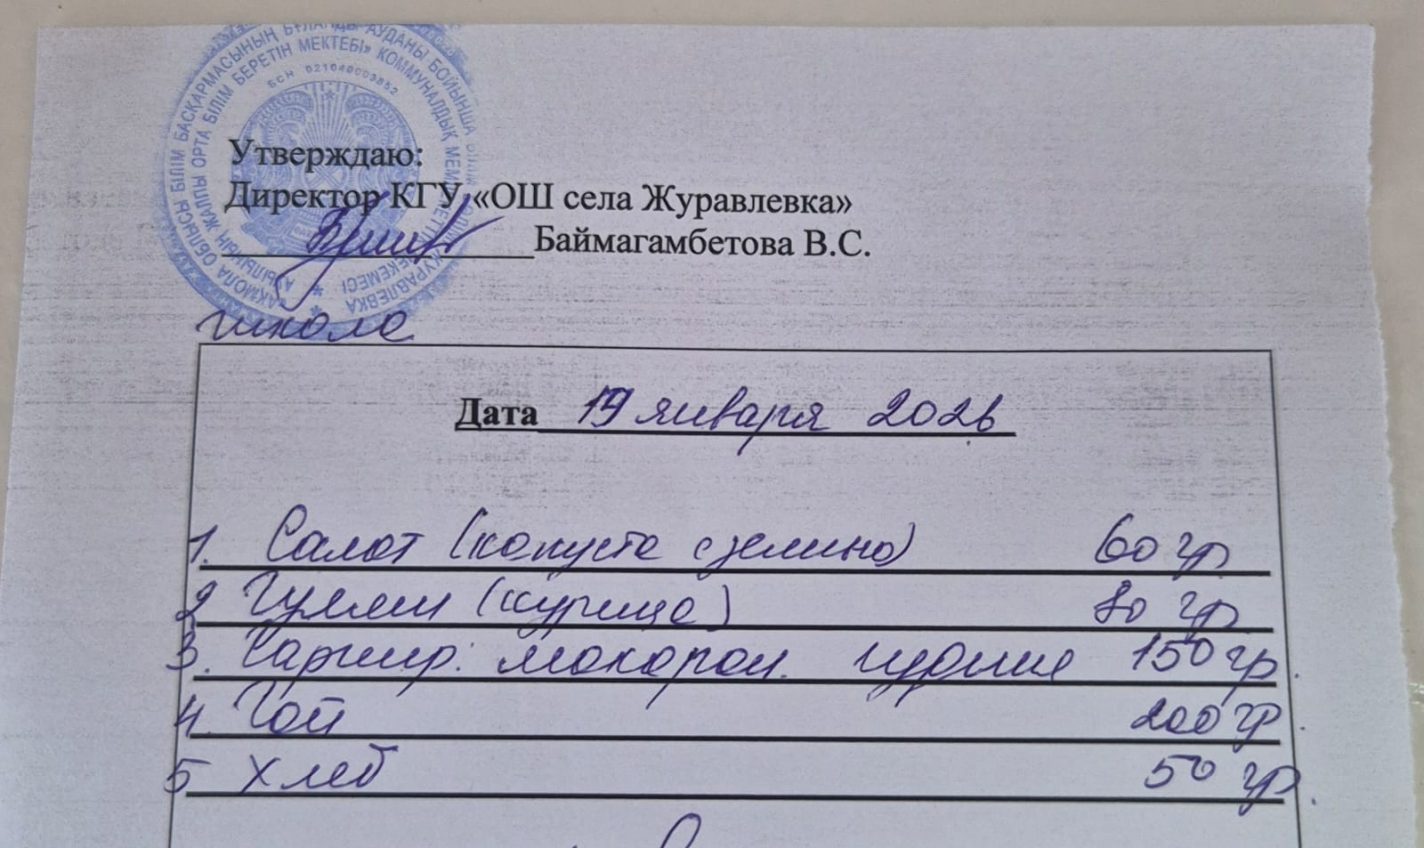 АКМОЛА ОБЛЫСЫ БІЛІМ БАСҚАРМАСЫНЫҢ БҰЛАНДЫ АУДАНЫ БОЙЫНША
ЖУРАВЛЕВКА АУЫЛЫНЫҢ ЖАЛПЫ ОРТА БІЛІМ БЕРЕТІН МЕКТЕБІ» КОММУНАЛДЫҚ МЕМЛЕКЕТТІК МЕКЕМЕСІ
БСН 021040003852
Утверждаю:
Директор КГУ «ОШ села Журавлевка»
Баймагамбетова В.С.
школа
Дата 19 января 2026
1. Салат (капуста с зелено) 60 гр
2 Гуляш (курица) 80 гр
3. Гарнир: макарон. 150 гр.
4. Чай 200 гр.
5 Хлеб 50 гр.